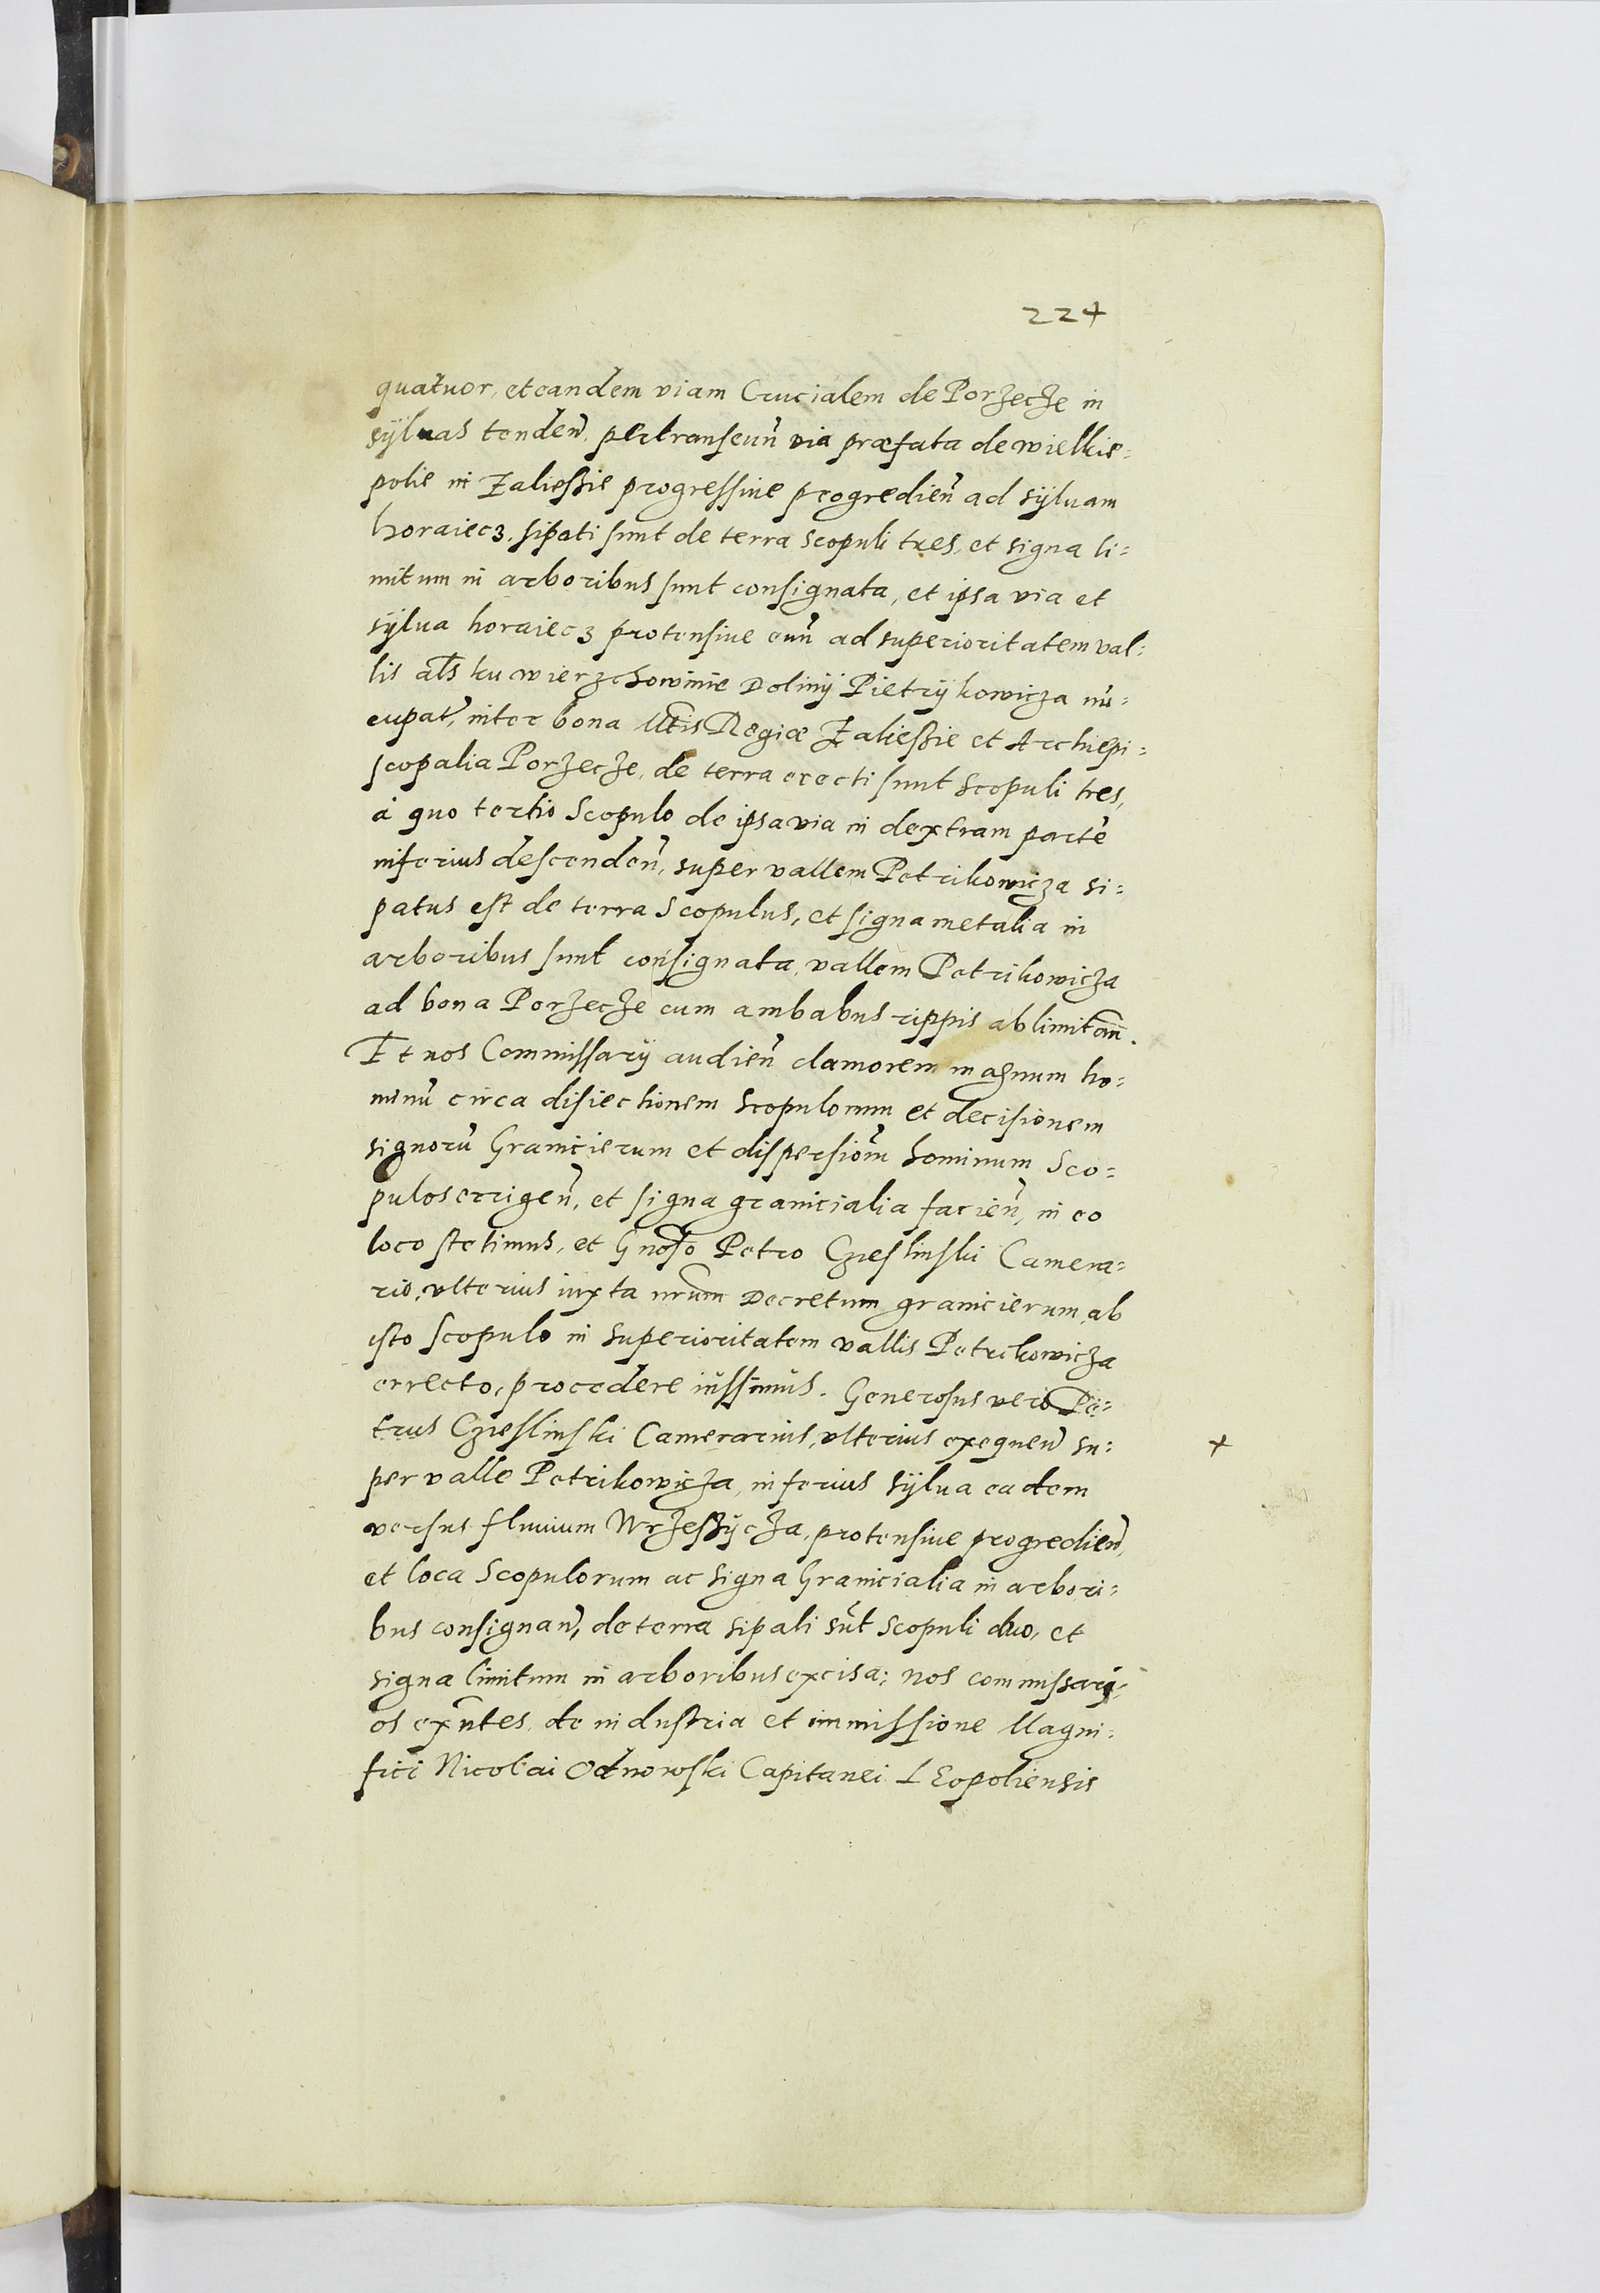 224
quatuor, et eandem viam Crucialem de Porzecze in
sÿluas tenden̄, pertranseun̄ via præfata de wielkie=
polie in Zaliessie progressiue progredien̄ ad sÿluam
horaiecz, sipati sunt de terra scopuli tres, et signa li=
mitum in arboribus sunt consignata, et ipsa via et
sÿlua horaiecz protensiue eun̄ ad superioritatem val=
lis al̄s ku wierzchowinie Dolinÿ Pietrÿkowicza nū=
cupat̄, inter bona Mt̄is Regiæ Zaliessie et Archiepi=
scopalia Porzecze, de terra erecti sunt Scopuli tres,
à quo tertio Scopulo de ipsa via in dextram partē
inferius descenden̄, super vallem Petrikowicza si=
patus est de terra Scopulus, et signa metalia in
arboribus sunt consignata, vallem Petrikowicza
ad bona Porzecze cum ambabus rippis ablimitan̄.
Et nos Commissarÿ audien̄ clamorem magnum ho=
minū circa disiectionem Scopulorum et decisionem
signorū Granicierum et dispersiom̄ hominum Sco=
pulos errigen̄, et signa granicialia facien̄, in eo
loco stetimus, et Gnōso Petro Czieslinski Camera=
rio, vlterius iuxta nr̄um Decretum granicierum, ab
isto scopulo in superioritatem vallis Petrikowicza
errecto, procedere iussimus. Generosus vero Pe=
trus Czieslinski Camerarius, vlterius exequen̄ su=
per valle Petrikowicza, inferius sÿlua eadem
versus fluuium Wrzeszÿcza, protensiue progredien̄,
et loca Scopulorum ac signa Granicialia in arbori=
bus consignan̄, de terra sipati sūt Scopuli duo, et
signa limitum in arboribus excisa; nos commissari=
os exn̄tes, de industria et immissione Magni=
fici Nicolai Odnowski Capitanei LEopoliensis
+